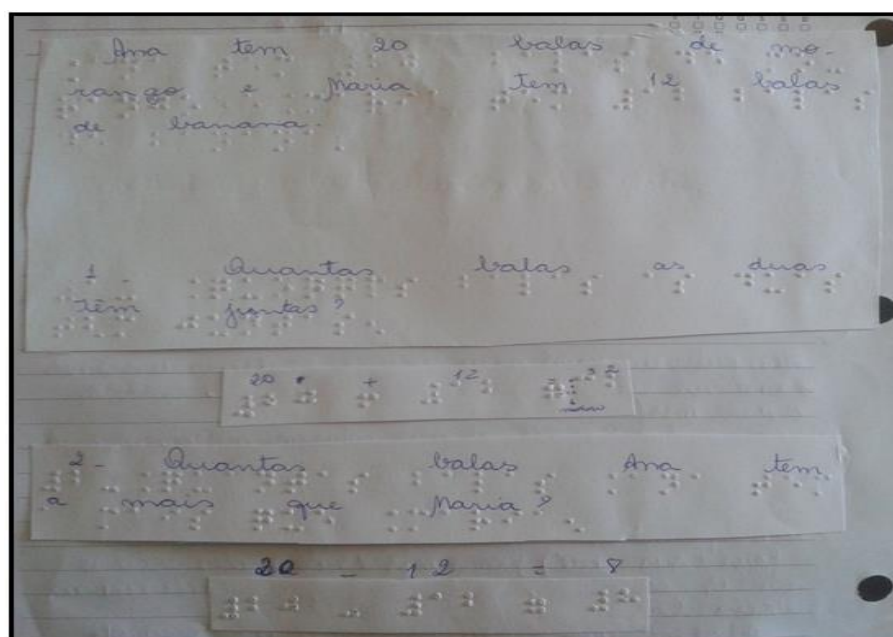 Ana tem 20 balas de mo-
rango e Maria tem 12 balas
de banana.
1 - Quantas balas as duas
têm juntas?
20 + 12 = 32
2 - Quantas balas Ana tem
a mais que Maria?
20 - 12 = 8